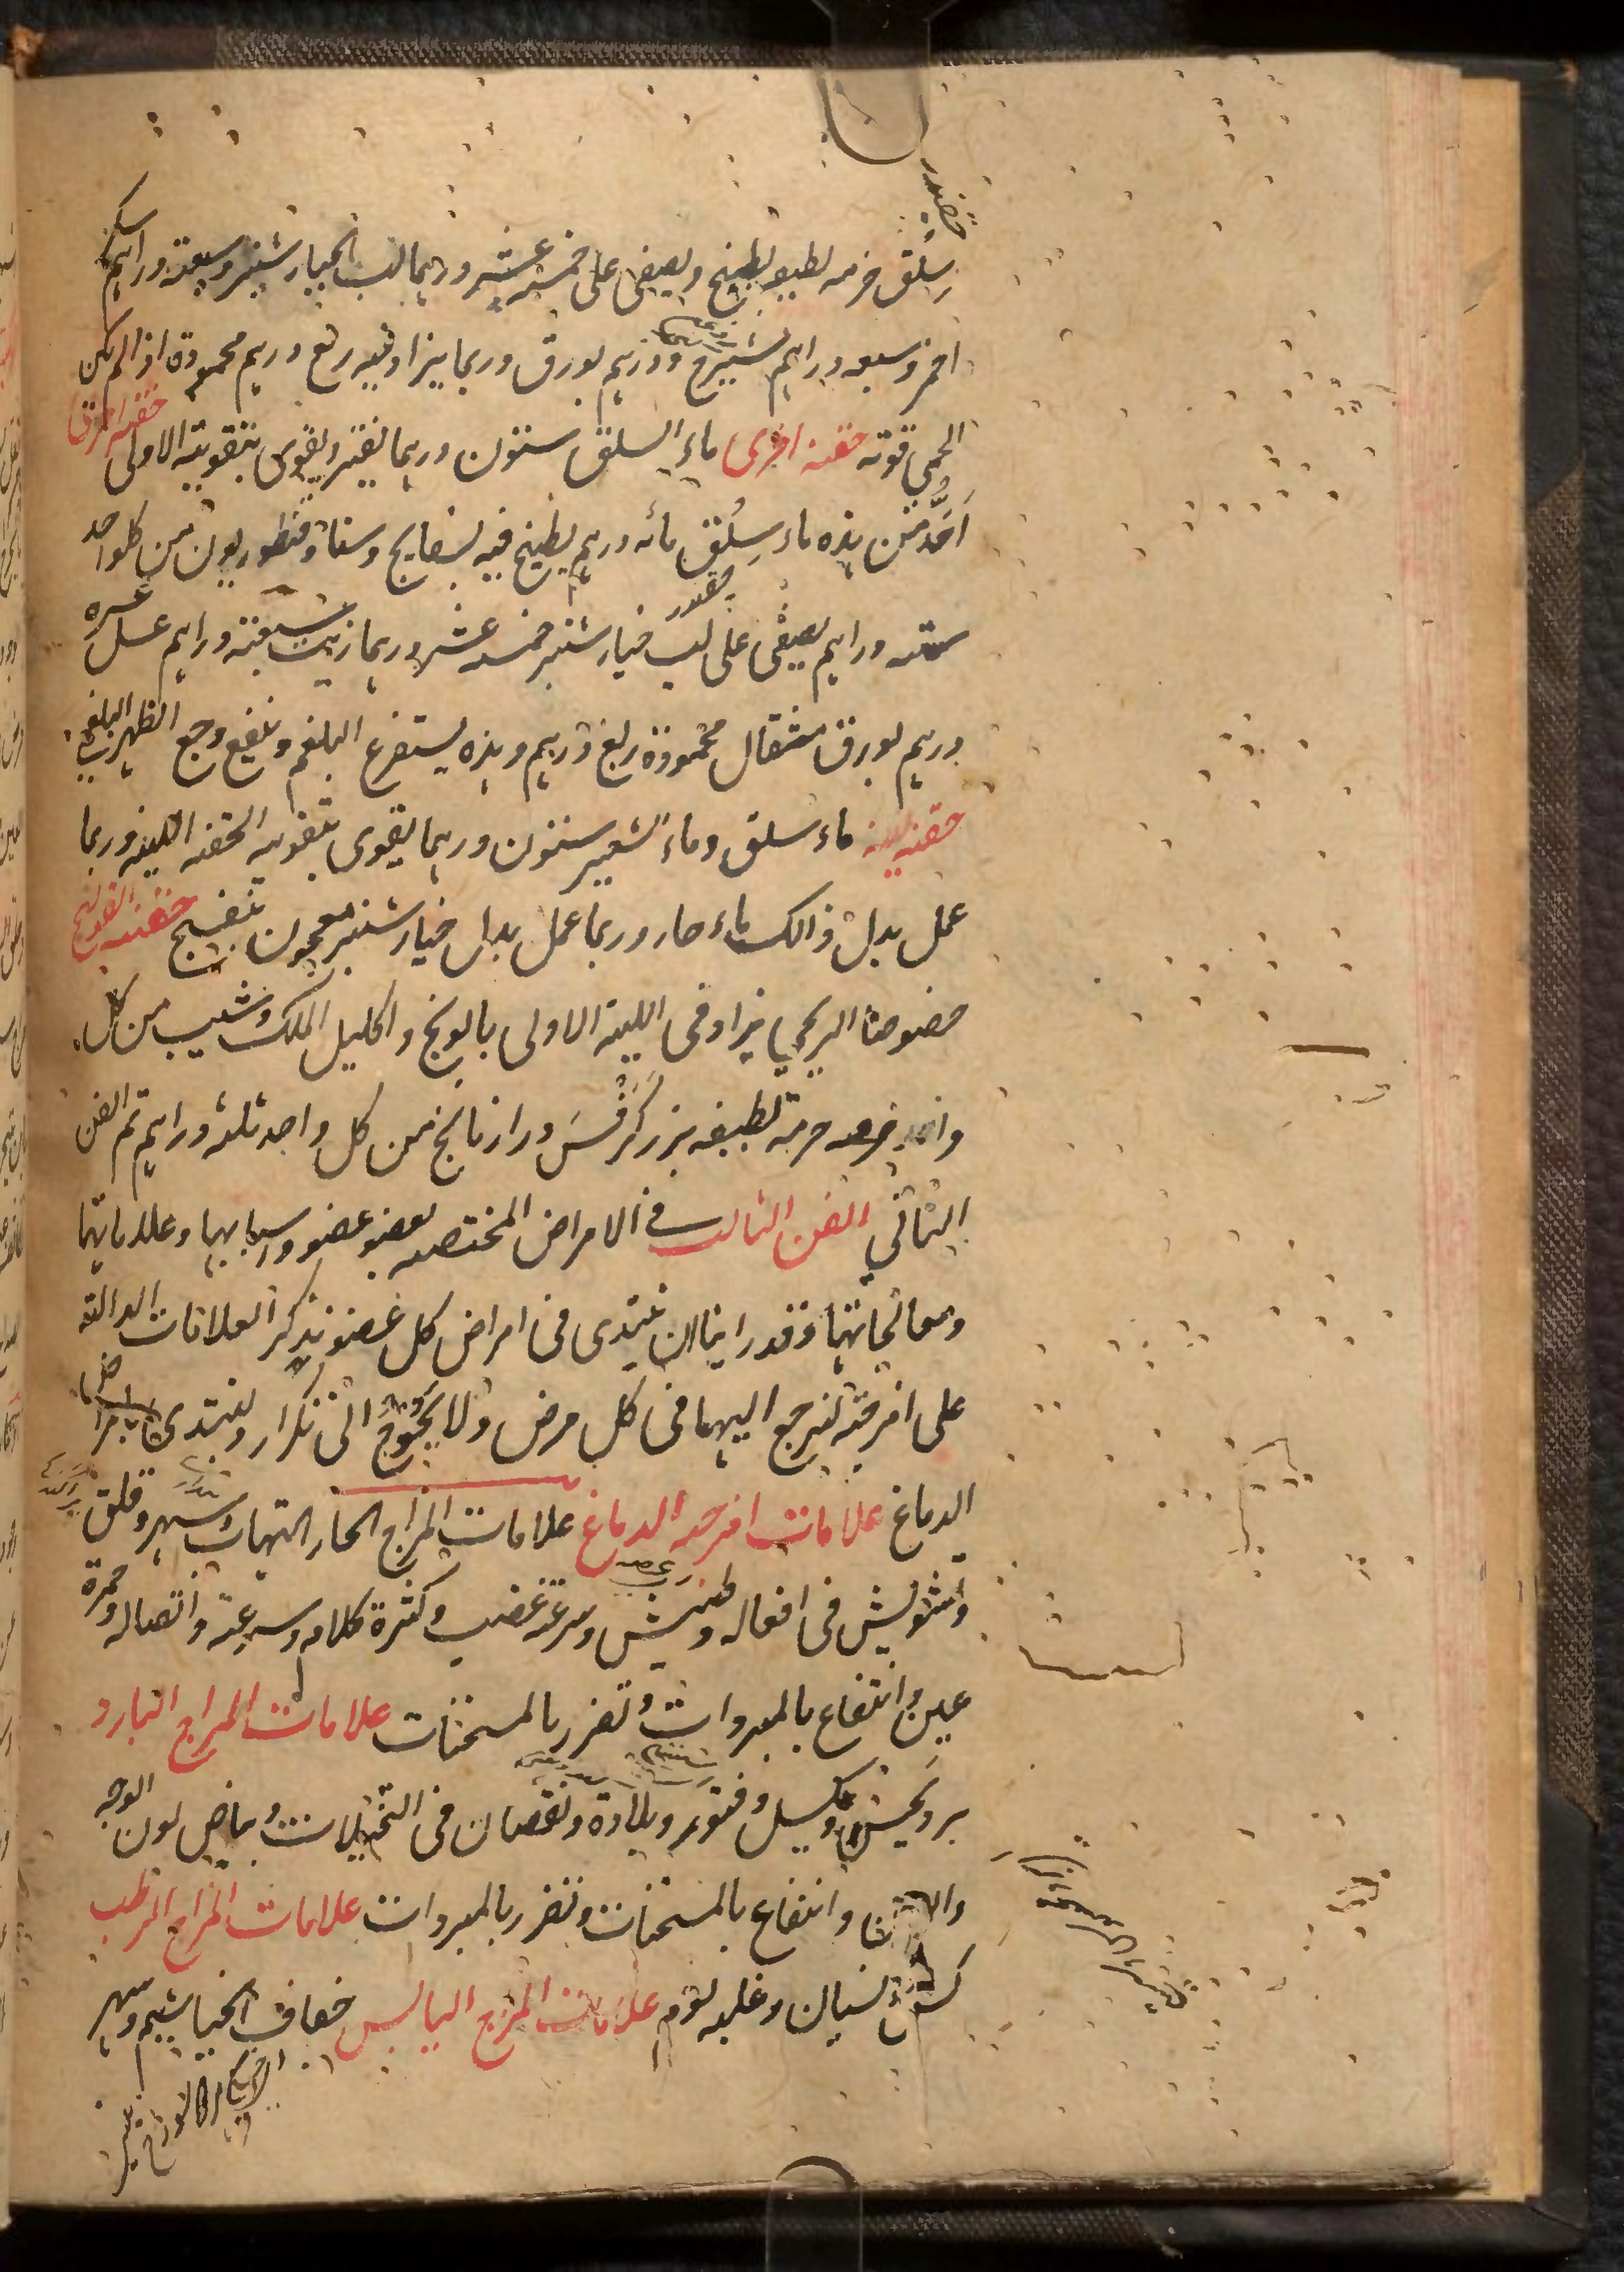 سلق حزمه لطيفه يطبخ ويصفى على خمسة عشر درهما لب الخيار شنبر وسبعة دراهم سكر
احمر وسبعه دراهم شيرج ودرهم بورق وربما يزاد فيه ربع درهم محمودة اذا لم يكن
الحمى قوته حقنه اخرى ماء السلق ستون درهما يفتر ويقوى بتقوية الاولى حقنه اخرى
اَحَدُّ من هذه ماء سلق مائه درهم يطبخ فيه بسفايج وسنا وقنطوريون من كلواحد
سته دراهم يصفى على لب خيار شنبر خمسه عشر درهما زيت سبعة دراهم عسل عشره
درهم بورق مثقال محمودة ربع درهم وهذه يستفرغ البلغم وينفع وجع الظهر البلغمى
حقنه لينه ماء سلق وماء الشعير ستون درهما يقوى بتقويه الحقنه اللينه وربما
عمل بدل ذالك ماء حار وربما عمل بدل خيار شنبر معجون بنفسج حقنه القولنج
خصوصا الريحي يزاد فى اللينه الاولى بابونج واكليل الملك وشبت من كل
واحد حزمه لطيفه بزر كرفس ورازيانج من كل واحد ثلثه دراهم تم الفن
الثاني الفن الثالث فى الامراض المختصه بعضو عضو واسبابها وعلاماتها
ومعالجاتها وقد راينا ان نبتدى فى امراض كل عضو بذكر العلامات الدالة
على امزجته ليرجع اليها فى كل مرض ولا يحوج الى تكرار ولنبتدى بامراض
الدماغ علامات امزجه الدماغ علامات المزاج الحار التهاب وسهر وقلق
وتشويش فى افعاله وطيش وسرعة غضب وكثرة كلام وسرعته واتصاله وحمرة
عين وانتفاع بالمبردات وتضرر بالمسخنات علامات المزاج البارد
برد يحس وكسل وفتور وبلادة ونقصان فى التخيلات وبياض لون الوجه
وانتفاع بالمسخنات وتضرر بالمبردات علامات المزاج الرطب
كسل نسيان وغلبه نوم علامات المزاج اليابس جفاف الخياشيم وسهر